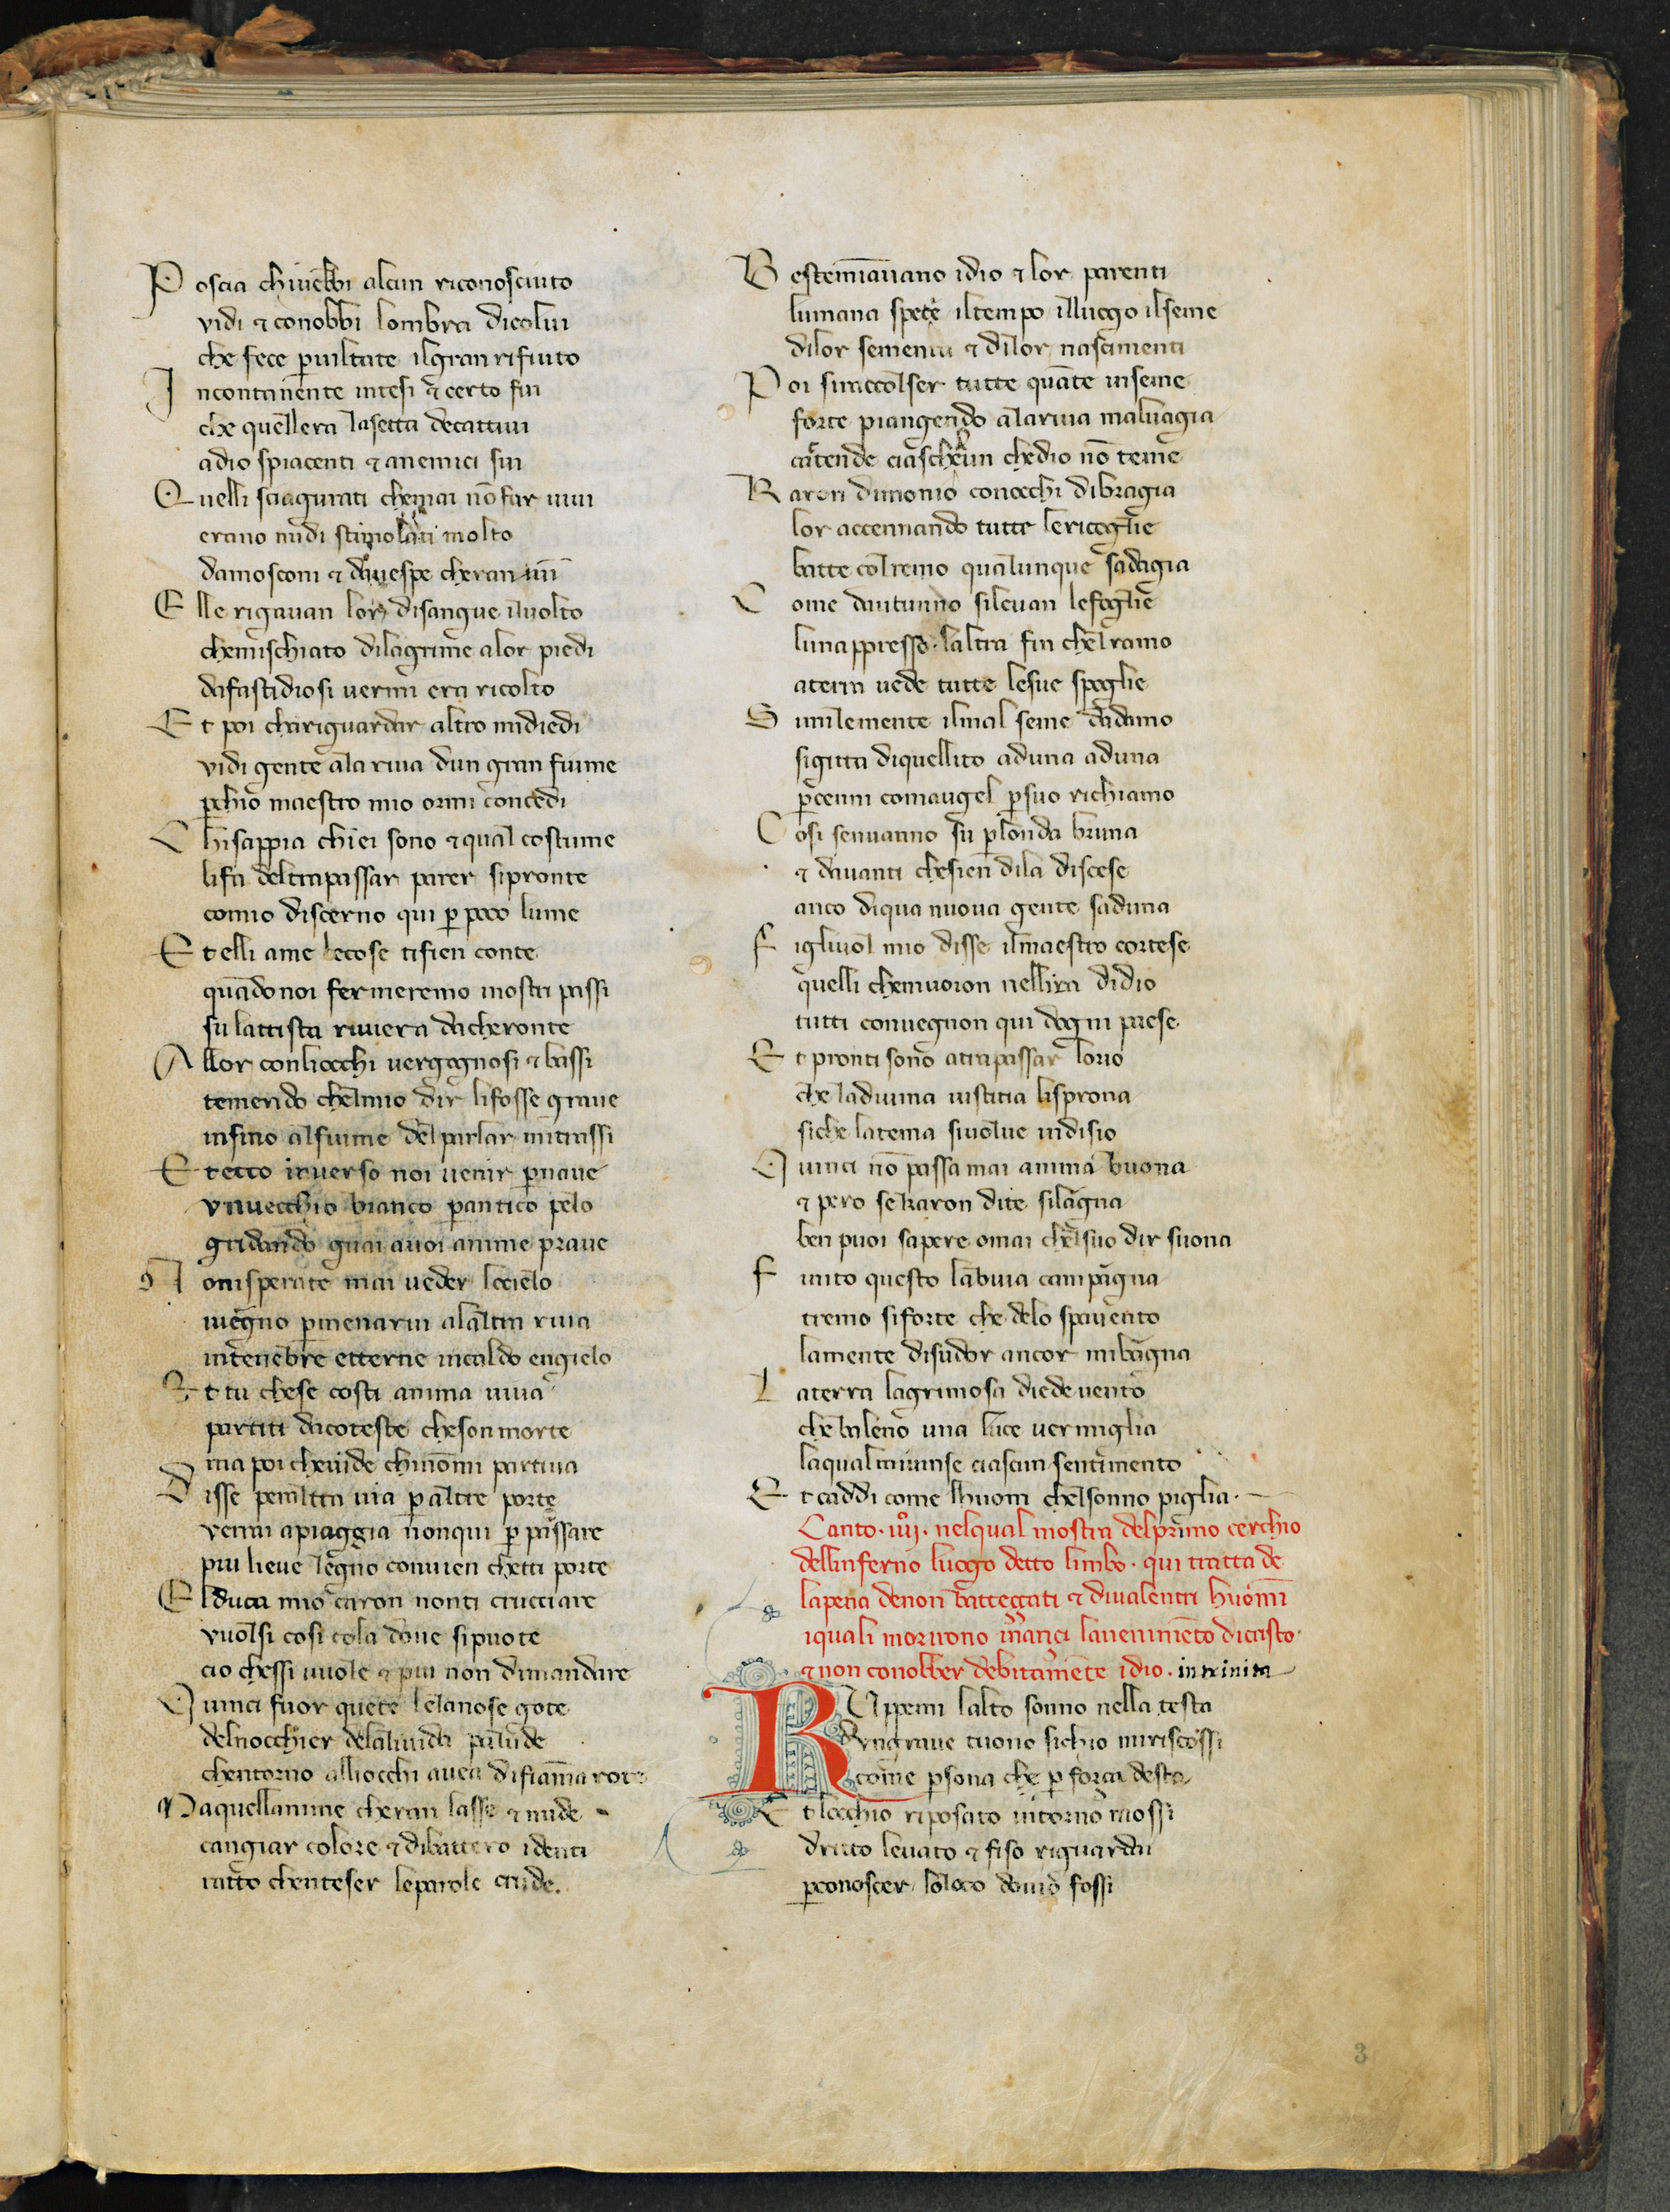 Poscia chiuebbi alcun riconosciuto
vidi ⁊ conobbi lombra dicolui
che fece p̲ uiltate ilgran rifiuto
Incontinente intesi ⁊ certo fui
che quellera lasetta decattiui
adio spiacenti ⁊ anemici sui
Quelli sciagurati chemai nō fur uiui
erano nudi stimolati molto
damosconi ⁊ dauespe cheran iui
Elle rigauan lor disangue iluolto
chemischiato dilagrime alor piedi
dafastidiosi uermi era ricolto
Et poi chariguardar altro midiedi
vidi gente ala riua dun gran fiume
p̲chio maestro mio ormi concedi
Chisappia chiei sono ⁊ qual costume
lifa deltrapassar parer sipronte
comio discerno qui p̲ poco lume
Et elli ame lecose tifien conte
quādonoi fermeremo inostri passi
su lattista riuiera dacheronte
Allor conliocchi uergognosi ⁊ bassi
temendo chelmio dir lifosse graue
infino alfiume del parlar mitrassi
Et ecco inuerso noi uenir p̲naue
vnuecchio bianco p̲antico pelo
gridando guai auoi anime praue
Nonisperate mai ueder locielo
iuegno p̲menarui alaltra riua
intenebre etterne incaldo engielo
Et tu chese costi anima uiua
partiti dacoteste cheson morte
ma poi cheuide chinōmi partiua
Disse peraltra uia p̲ altre porte
verrai apiaggia nonqui p̲ passare
piu lieue legno conuien chetti porte
Elduca mio caron nonti crucciare
vuolsi cosi cola doue sipuote
cio chessi uuole ⁊ piu non dimandare
Quinci fuor quete lelanose gote
delnocchier delaliuida palude
chentorno alliocchi auea difiāma rote
Maquellanime cheran lasse ⁊ nude
cangiar colore ⁊ dibattero identi
ratto chenteser leparole crude.
Bestemiauano idio ⁊ lor parenti
lumana spetie iltempo illuogo ilseme
dilor sementa ⁊ dilor nascimenti
Poi siraccolser tutte quāte insieme
forte piangendo alariua maluagia
cattende ciascheun chedio nō teme
Karon dimonio conocchi dibragia
lor accennando tutte lericoglie
batte colremo qualunque sadagia
Come dautunno sileuan lefoglie
lunappresso laltra fin chelramo
aterra uede tutte lesue spoglie
Similemente ilmal seme dadamo
sigitta diquellito aduna aduna
p̲cenni comaugel p̲suo richiamo
Cosi senuanno su p̲londa bruna
⁊ dauanti chesien dila discese
anco diqua nuoua gente saduna
Figliuol mio disse ilmaestro cortese
quelli chemuoion nellira didio
tutti conuegnon qui dogni paese
Et pronti sono atrapassar lorio
che ladiuina iustitia lisprona
siche latema siuolue indisio
Quinci nō passa mai anima buona
⁊ pero sekaron dite silagna
ben puoi sapere omai chelsuo dir suona
Finito questo labuia campagna
tremo siforte che delo spauento
lamente disudor ancor mibagna
Laterra lagrimosa diede uento
che baleno una luce uermiglia
laqual miuinse ciascun sentimento
Et caddi come lhuom chelsonno piglia.
Canto . iiij . nelqual mostra delprimo cerchio
dellinferno luogo detto limbo . qui tratta de
lapena denon battezzati ⁊ diualenti huomī
iquali morirono inanzi lauenimēto dicristo
⁊ non conobber debitamēte idio . in trinita
RUppemi lalto sonno nella testa
vngraue tuono sichio miriscossi
come p̲sona che p̲ forza desta
Et locchio riposato intorno mossi
dritto leuato ⁊ fiso riguardai
p̲conoscer loloco douio fossi
3